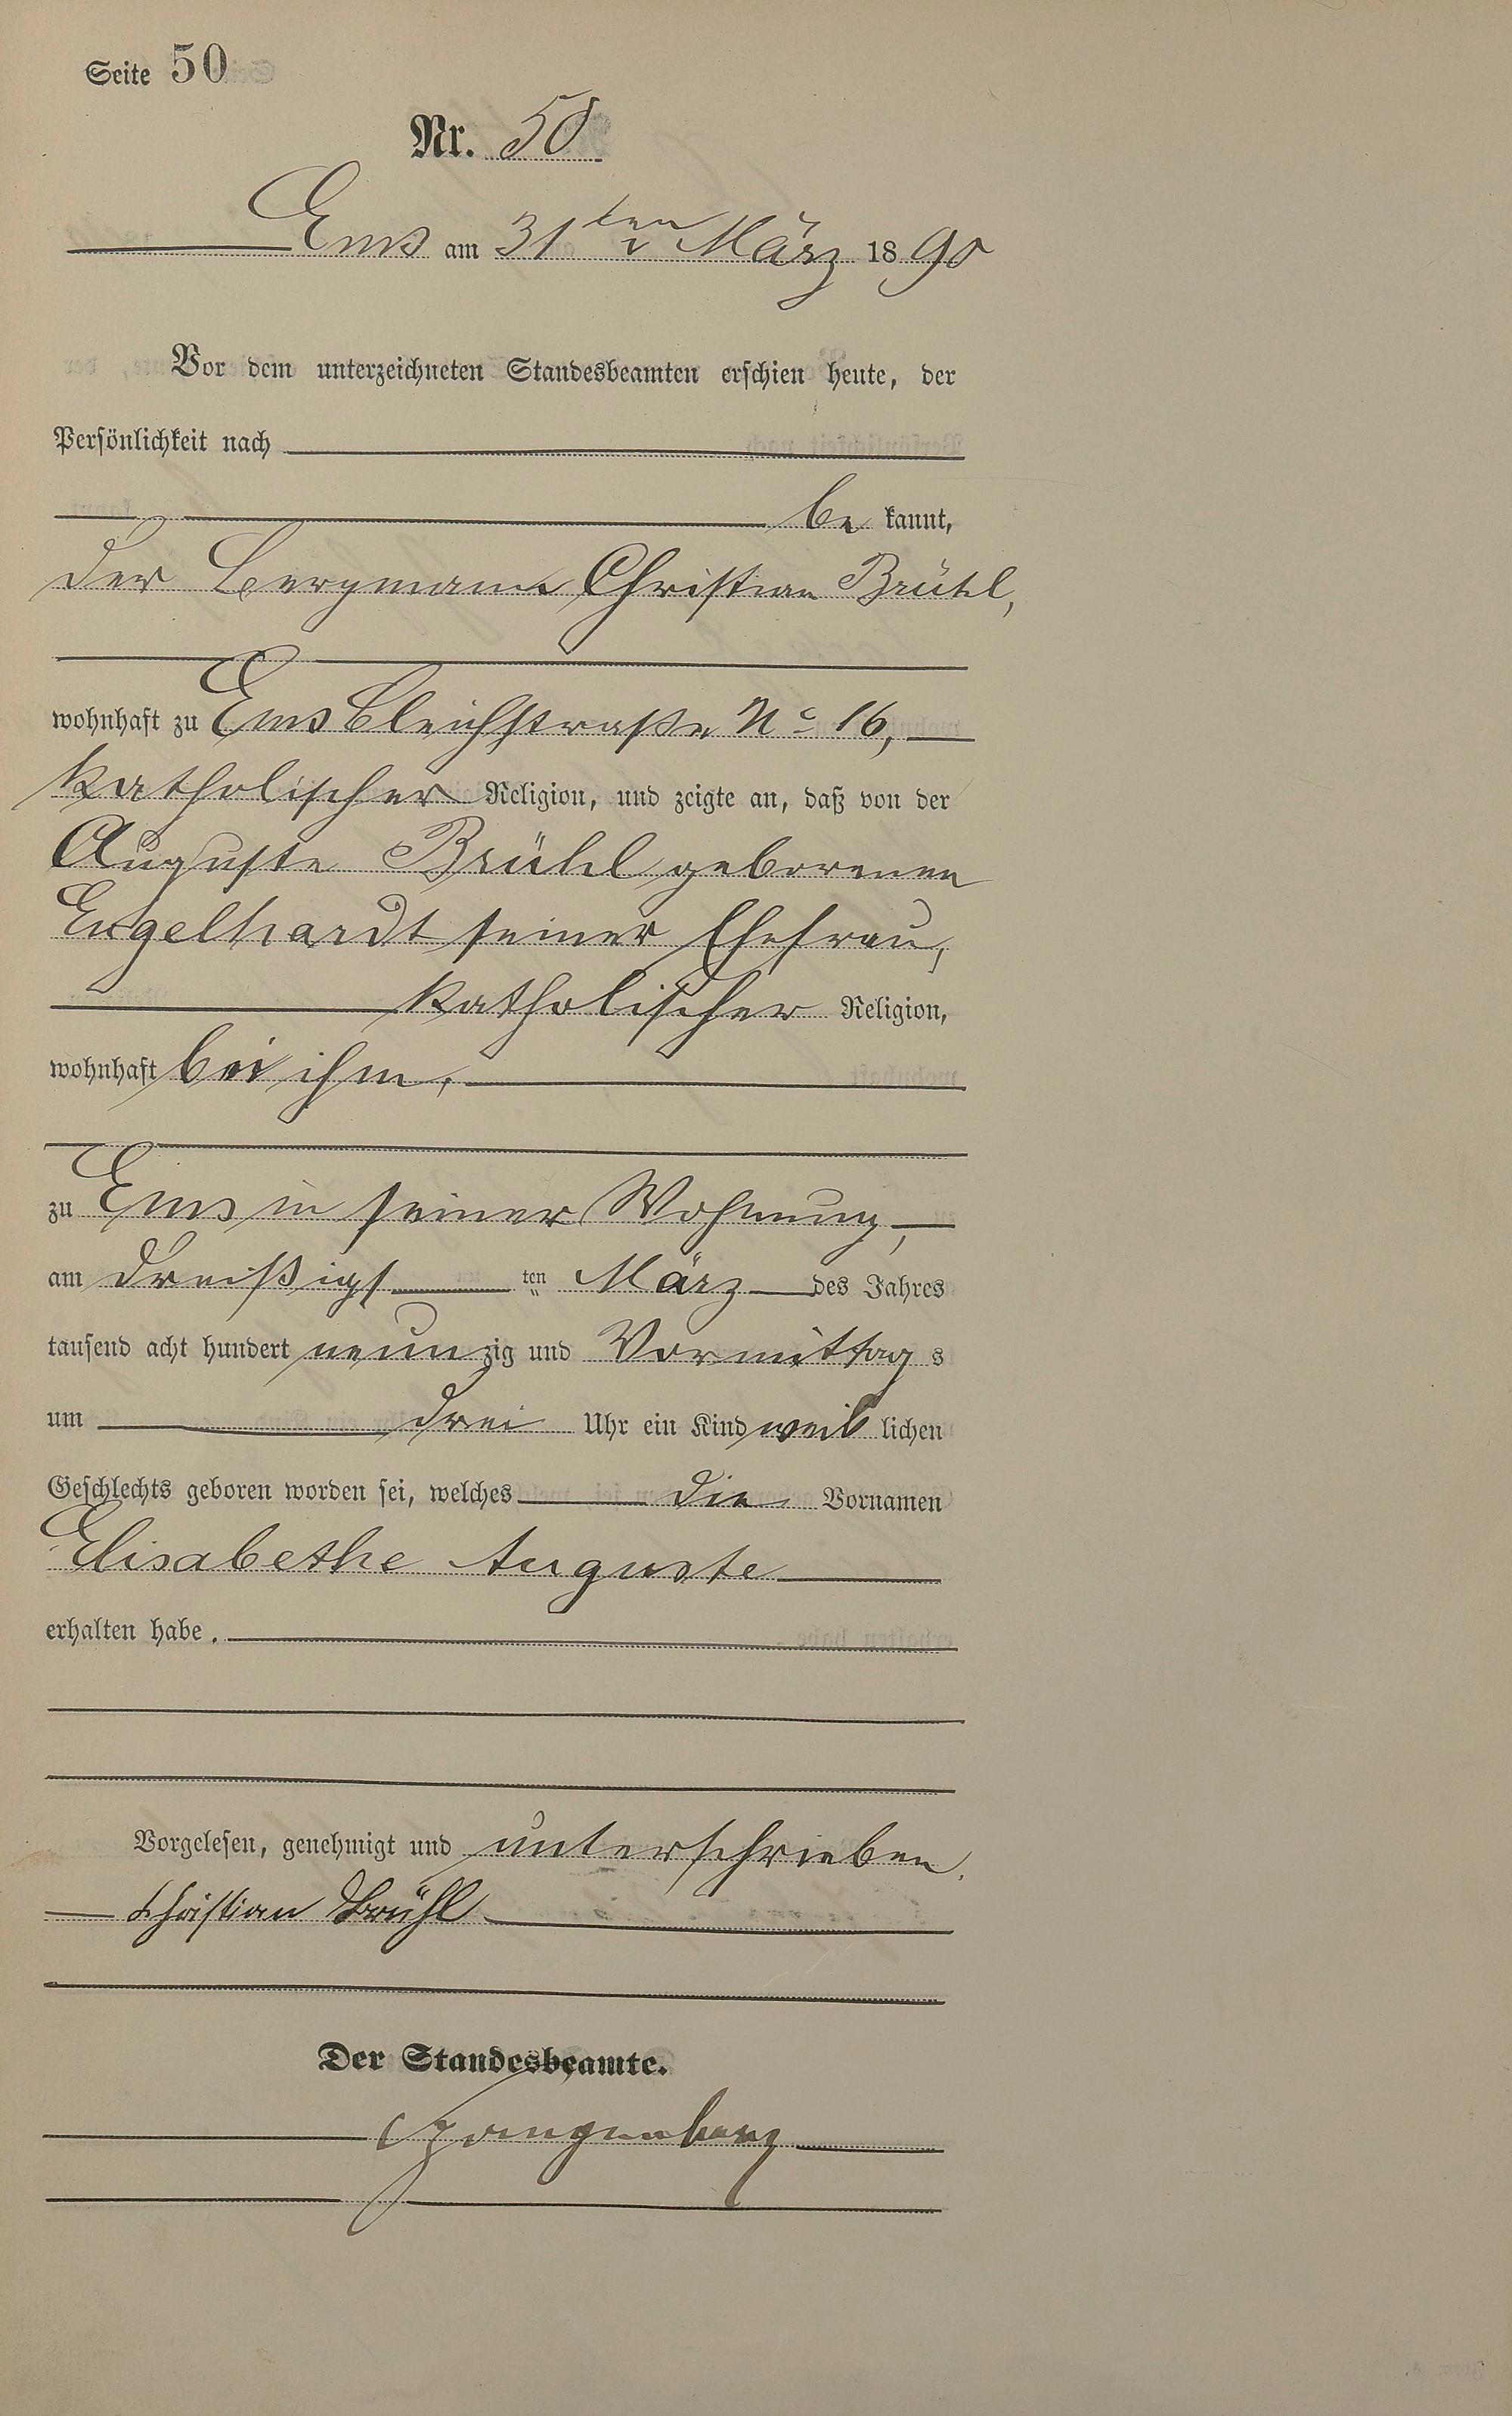 Seite 50
Nr. 50
Ems am 31ten März 1890
Vor dem unterzeichneten Standesbeamten erschien heute, der
Persönlichkeit nach
be kannt,
der Bergmann Christian Brühl,
wohnhaft zu Ems Bleichstraße No 16,
katholischer Religion, und zeigte an, daß von der
Auguste Brühl geborenen
Engelhardt seiner Ehefrau,
katholischer Religion,
wohnhaft bei ihm,
zu Ems in seiner Wohnung,
am dreißigsten März des Jahres
tausend acht hundert neunzig und Vormittags
um drei Uhr ein Kind weiblichen
Geschlechts geboren worden sei, welches die Vornamen
Elisabethe Auguste
erhalten habe.
Vorgelesen, genehmigt und unterschrieben.
Christian Brühl
Der Standesbeamte.
Spangenberg